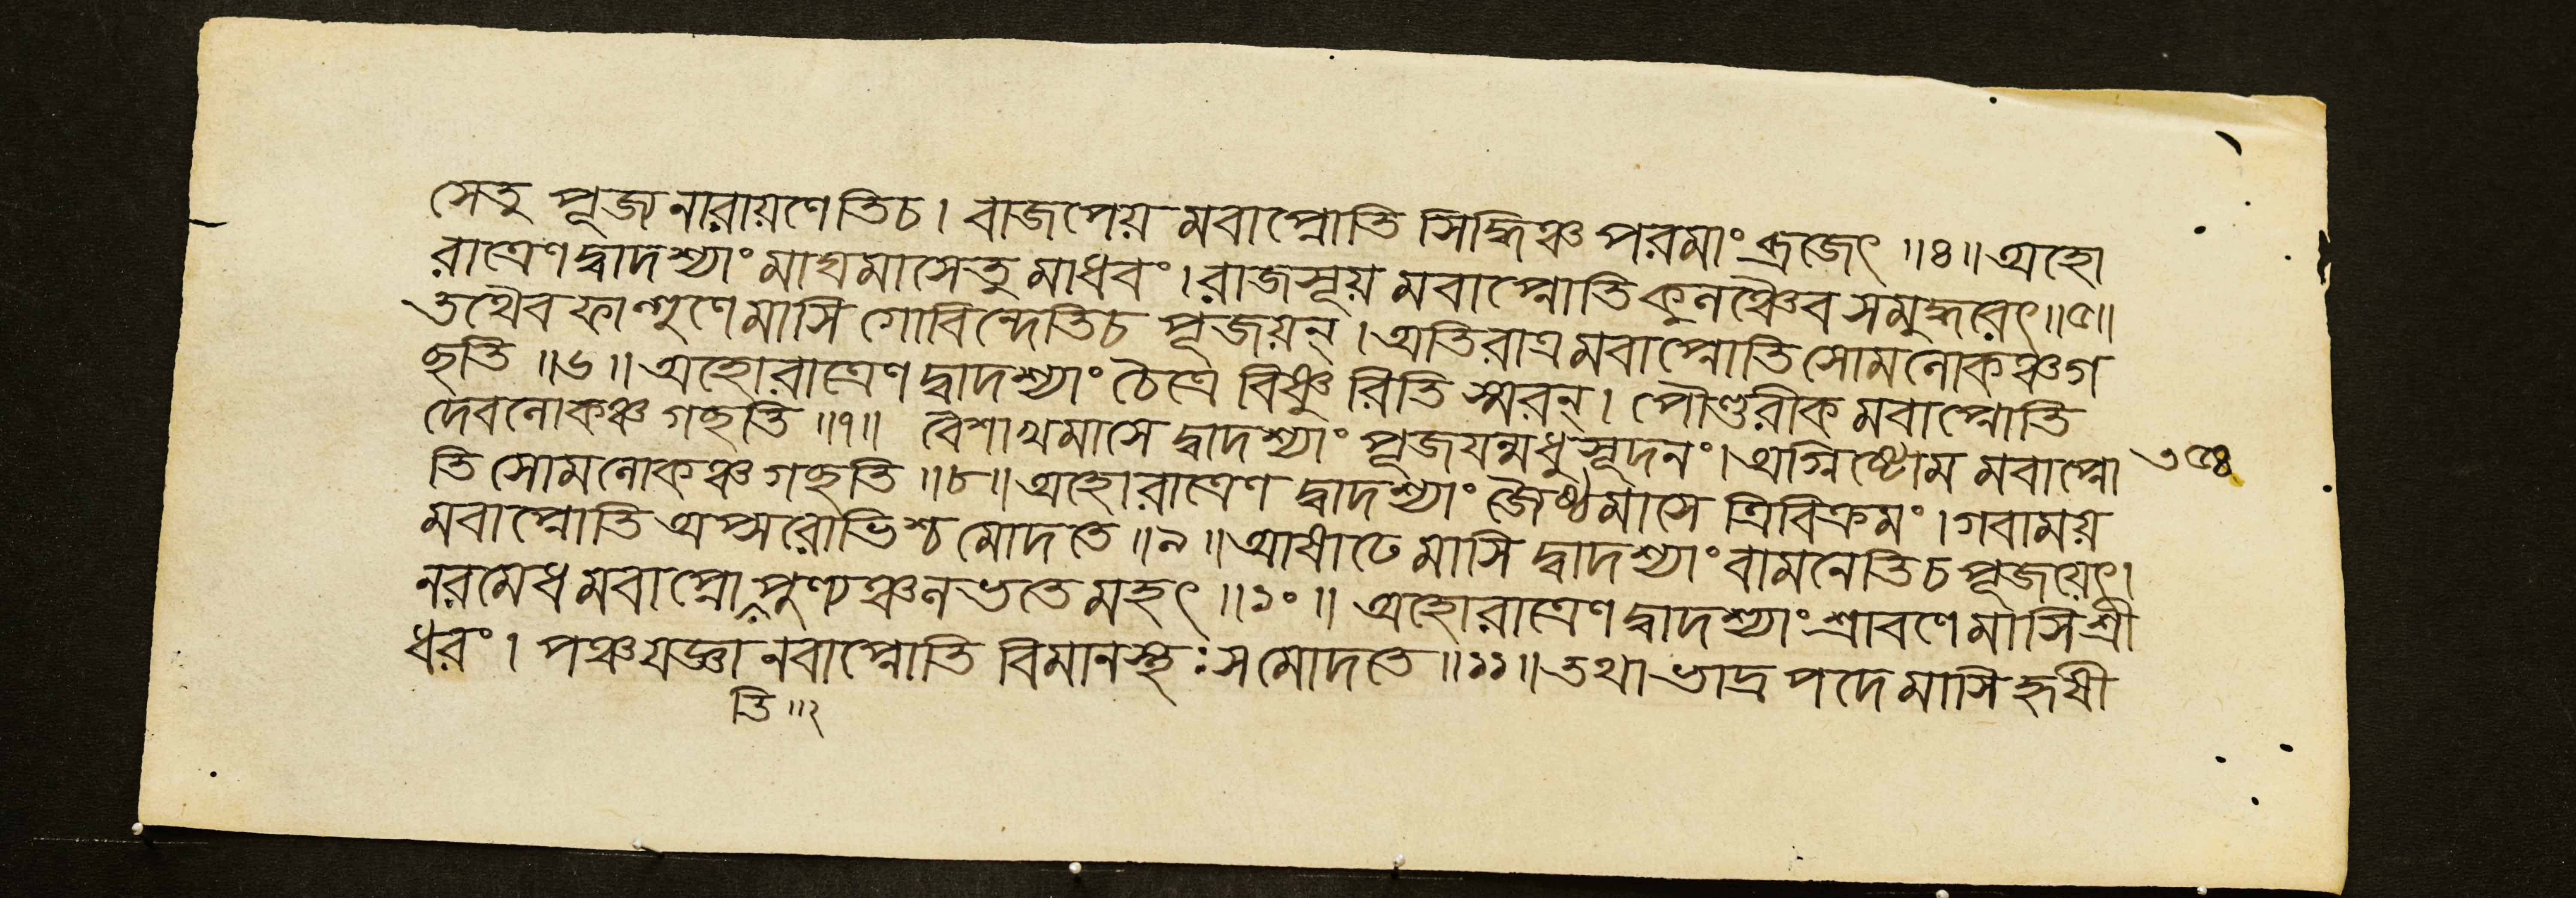 সেতু পূজ্য নারায়ণেতিচ। বাজপেয় মবাপ্নোতি সিদ্ধিঞ্চ পরমাং ব্রজেৎ ॥৪॥ অহো
রাত্রেণ দ্বাদশ্যাং মাঘমাসেতু মাধবং। রাজসূয় মবাপ্নোতি কুলঞ্চৈব সমুদ্ধরেৎ॥৫॥
তথৈব ফাল্গুণেমাসি গোবিন্দেতিচ পূজয়ন্। অতিরাত্র মবাপ্নোতি সোমলোকঞ্চগ
ছতি ॥৬॥ অহোরাত্রেণ দ্বাদশ্যাং চৈত্রে বিষ্ণু রিতি স্মরন্। পৌণ্ডরীক মবাপ্নোতি
দেবলোকঞ্চ গচ্ছতি ॥৭॥ বৈশাখমাসে দ্বাদশ্যাং পূজযন্মধুসূদনং। অগ্নিষ্টোম মবাপ্নো
তি সোমলোকঞ্চ গচ্ছতি ॥৮॥ অহোরাত্রেণ দ্বাদশ্যাং জ্যৈষ্ঠেমাসে ত্রিবিক্রমং। গবাময়
মবাপ্নোতি অপ্সরোভিশ্চ মোদতে ॥৯॥ আষাঢে মাসি দ্বাদশ্যাং বামনেতিচ পূজয়েৎ।
নরমেধ মবাপ্নো পুণ্যঞ্চলভতে মহৎ ॥১০॥ অহোরাত্রেণ দ্বাদশ্যাং শ্রাবণেমাসি শ্রী
ধরং। পঞ্চযজ্ঞা নবাপ্নোতি বিমানস্থঃ সমোদতে ॥১১॥ তথা ভাদ্র পদে মাসি হৃষী
তি ॥২